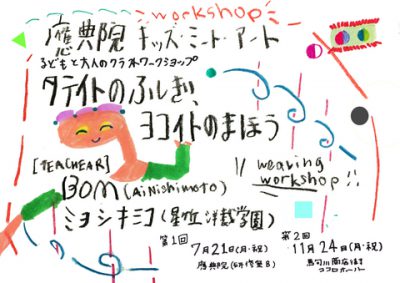 workshop
應典院 キッズ・ミート・アート
子どもと大人のクラフトワークショップ
タテイトのふしぎ、
ヨコイトのまほう
[TEACHEAR]
BOM (Ai Nishimoto)
ミヨシキミコ (星ヶ丘洋裁学園)
weaving
workshop!!
第1回
7月21日(月・祝)
應典院(研修室B)
第2回
11月24日(月・祝)
ココロホール